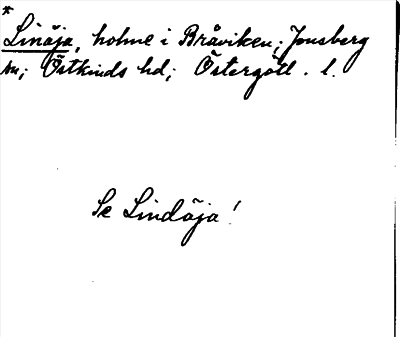 *
Linöja, holme i Bråviken; Jonsberg
sn; Östkinds hd; Östergötl. l.
Se Lindöja!